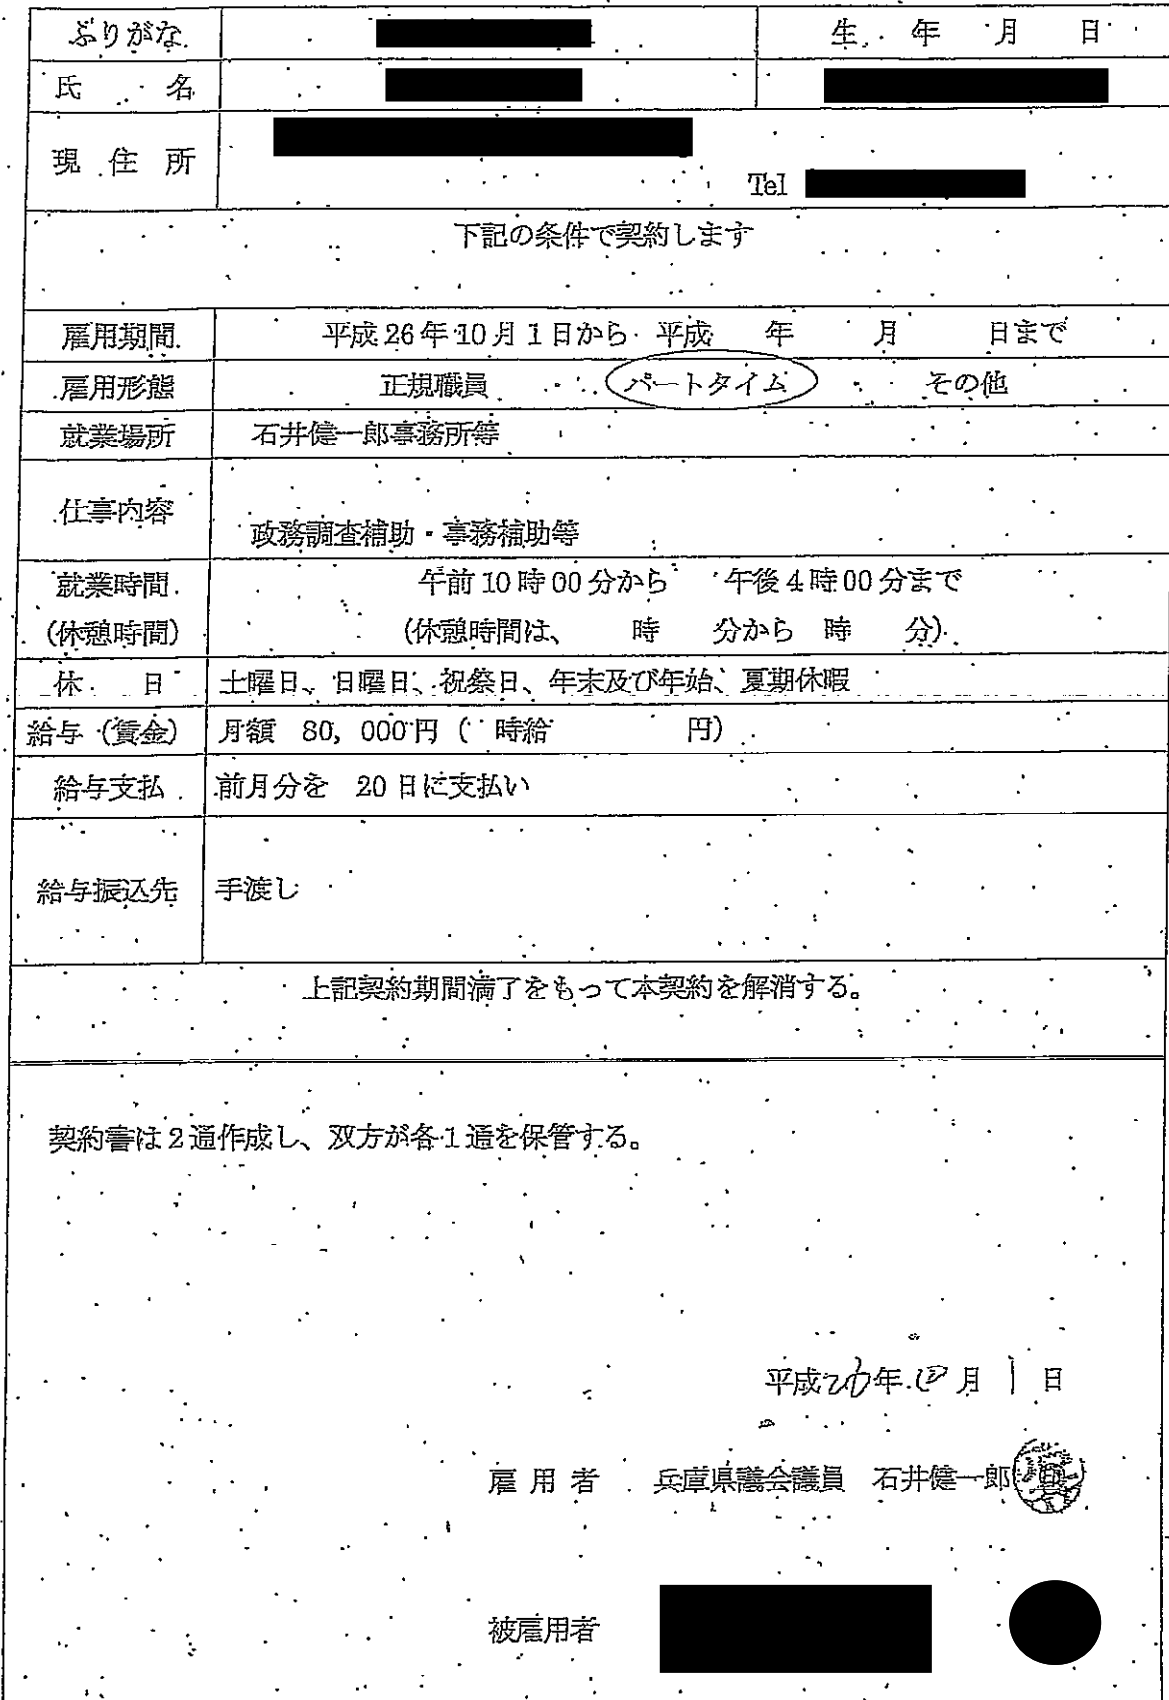 ふりがな 生 年 月 日
氏 名
現 住 所
Tel
下記の条件で契約します
雇用期間 平成26年10月1日から 平成 年 月 日まで
雇用形態 正規職員 パートタイム その他
就業場所 石井健一郎事務所等
仕事内容
政務調査補助・事務補助等
就業時間 午前10時00分から 午後4時00分まで
(休憩時間) (休憩時間は、 時 分から 時 分)
休 日 土曜日、日曜日、祝祭日、年末及び年始、夏期休暇
給与(賃金) 月額 80,000円( 時給 円)
給与支払 前月分を 20日に支払い
給与振込先 手渡し
上記契約期間満了をもって本契約を解消する。
契約書は2通作成し、双方が各1通を保管する。
平成26年10月1日
雇用者 兵庫県議会議員 石井健一郎
被雇用者